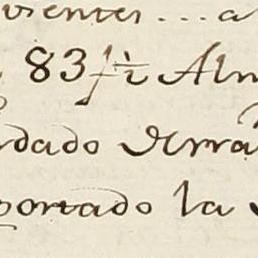 uientes... a
83 1/2 Alm
dado
portado la